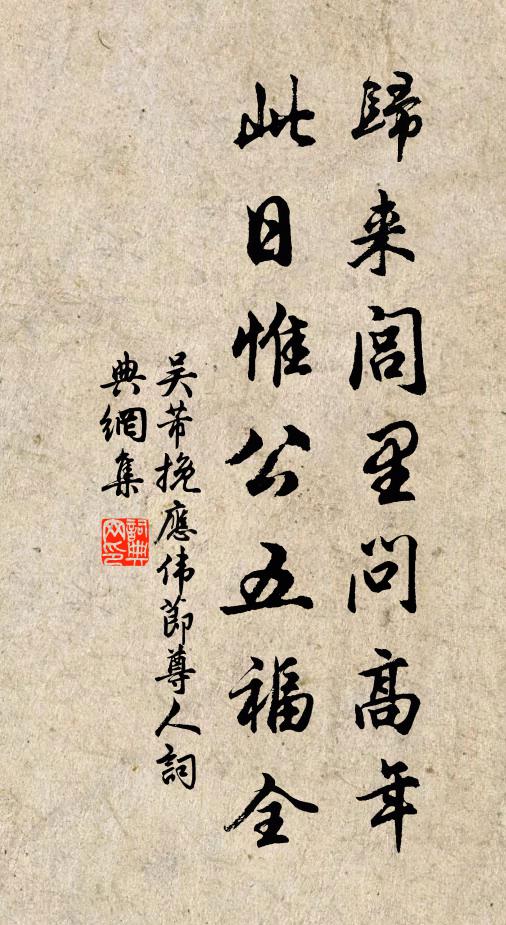 歸来閭里問高年
此日惟公五福全
吴芾挽應伟節尊人詞
典網集
詞典网印